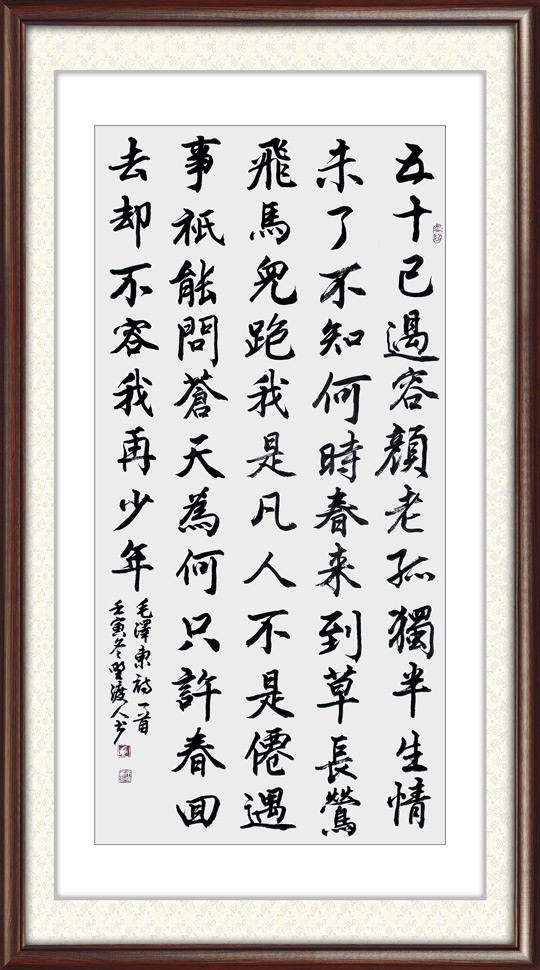 五十已過容顏老孤獨半生情
未了不知何時春来到草長鶯
飛馬兒跑我是凡人不是僊遇
事祇能問蒼天為何只許春回
去却不容我再少年
毛澤東詩一首
壬寅冬野渡人书